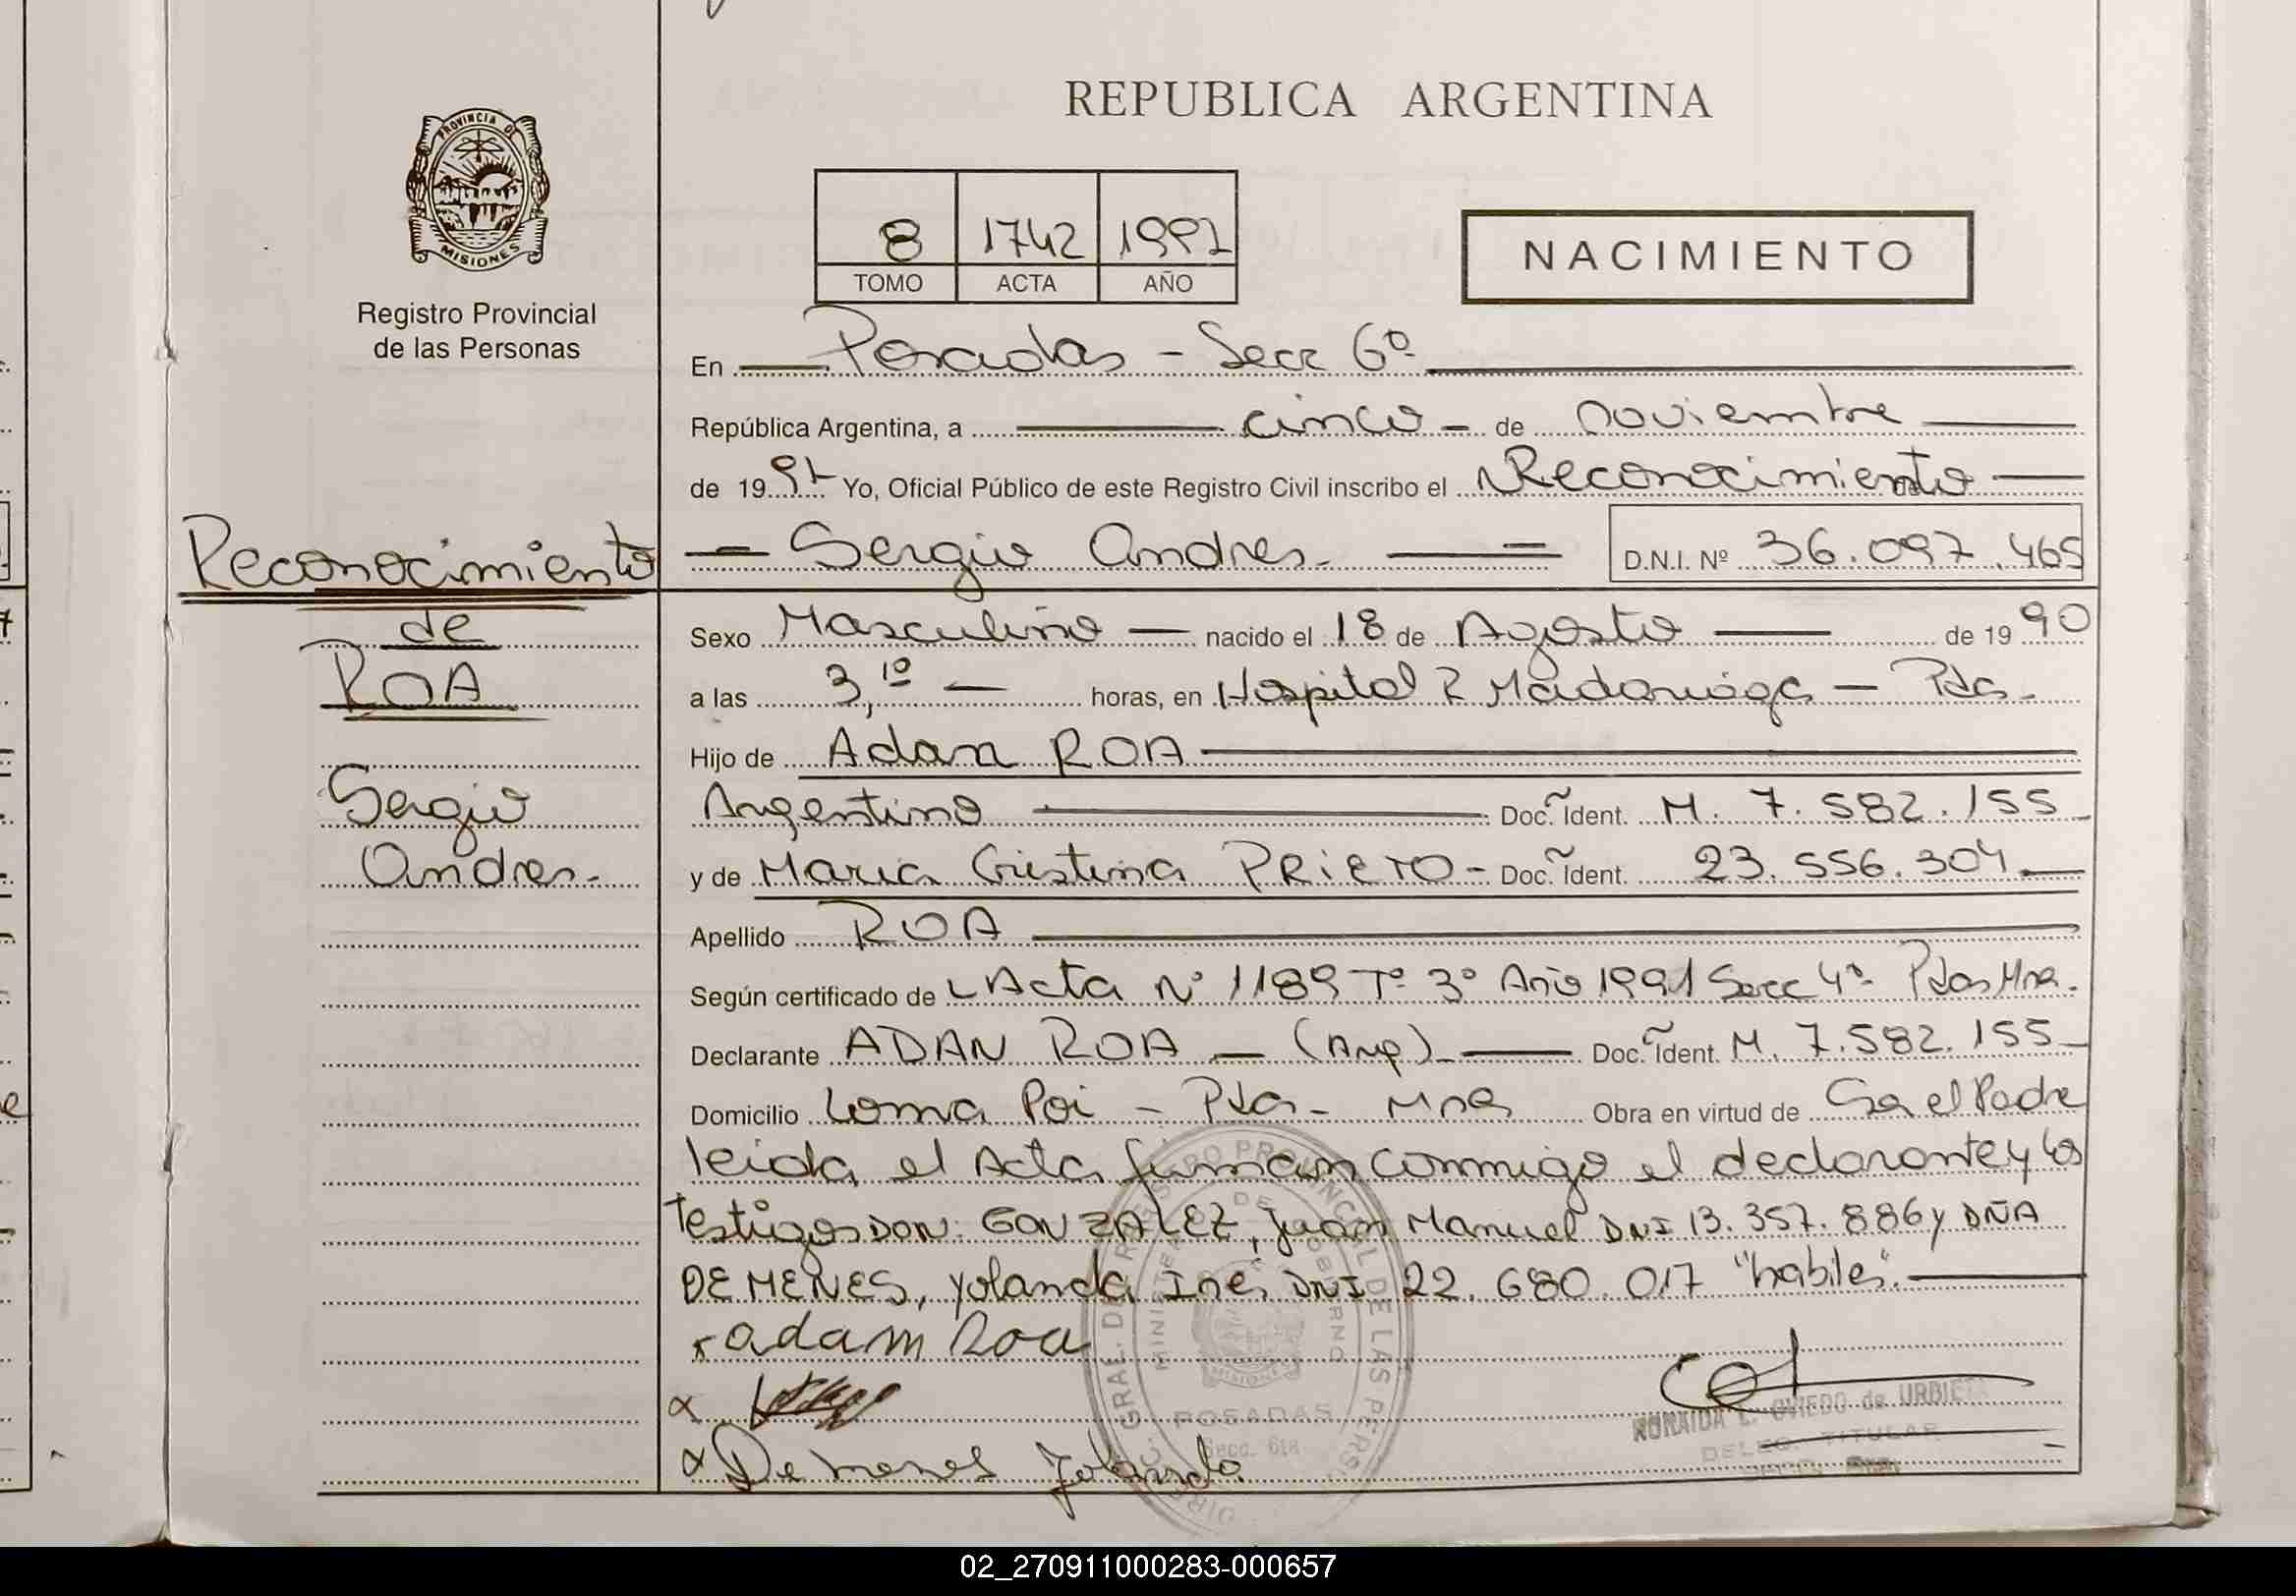 REPUBLICA ARGENTINA
PROVINCIA DE
MISIONES
Registro Provincial
de las Personas
8 1742 1991
TOMO ACTA AÑO
NACIMIENTO
En Posadas - Secc 6º
República Argentina, a cinco - de noviembre
de 1991 Yo, Oficial Público de este Registro Civil inscribo el Reconocimiento
Sergio Andres. D.N.I. Nº 36.097.465
Reconocimiento
de
ROA
Sergio
Andres.
Sexo Masculino nacido el 18 de Agosto de 1990
a las 3,10 horas, en Hospital R Madariaga - Pdas.
Hijo de Adan ROA
Argentino Doc. Ident. M. 7.582.155
y de Maria Cristina PRIETO - Doc. Ident. 23.556.304
Apellido ROA
Según certificado de Acta Nº 1189 Tº 3º Año 1991 Secc 4ª Pdas Mnes.
Declarante ADAN ROA - (Arg) Doc. Ident. M. 7.582.155
Domicilio Loma Poi - Pdas - Mnes Obra en virtud de Ser el Padre
leida el Acta firman conmigo el declarante y los
testigos DON: GONZALEZ, Juan Manuel DNI 13.357.886 y DÑA
DE MENES, Yolanda Ines DNI 22.680.017 "habiles".
adam Roa
De menes Yolanda
DIREC. GRAL. DE REGISTRO PROVINCIAL DE LAS PERSONAS
MINISTERIO DE GOBIERNO
MISIONES
POSADAS
Secc. 6ta
OVIEDO de URBIETA
DELEG. TITULAR
02_270911000283-000657